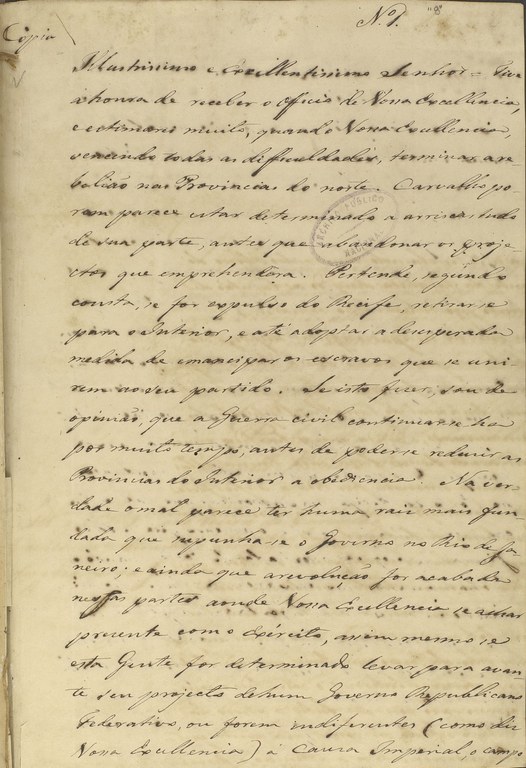 Nº 1.
"8
Cópia
Illustrissimo e Excellentissimo Senhor = Tive
a honra de receber o Officio de Vossa Excellencia,
e estimarei muito, quando Vossa Excellencia,
vencendo todas as difficuldades, terminar a re-
belião nas Provincias do norte. Carvalho po-
rem parece estar determinado a arriscar tudo
de sua parte, antes que abandonar os proje-
ctos que emprehendera. Pertende, segundo
consta, se for expulso do Recife, retirar-se
para o Interior, e até adoptar a desesperada
medida de emancipar os escravos que se uni-
rem ao seu partido. Se isto fizer, sou de
opinião, que a Guerra civil continuar-se-ha
por muito tempo, antes de poder-se reduzir as
Provincias do Interior a obediencia. Na ver-
dade o mal parece ter huma raiz mais fun-
dada que suppunha-se o Governo no Rio de Ja-
neiro; e ainda que a revolução for acabada
nessas partes aonde Vossa Excellencia se achar
presente com o Exército, assim mesmo se
esta Gente for determinada levar para avan-
te seu projecto de hum Governo Republicano
Federativo, ou forem indiferentes (como diz
Vossa Excellencia) á Causa Imperial, o campo